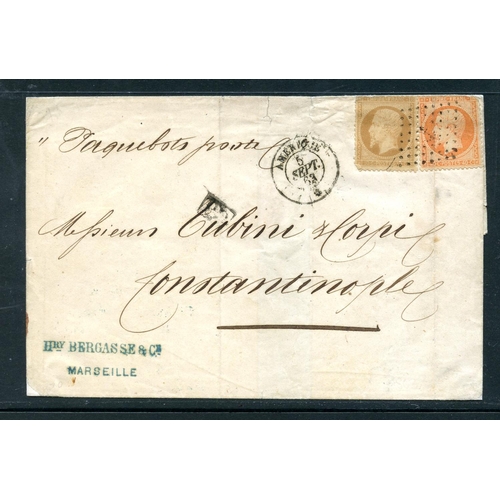 " Paquebots poste
AMERIQUE
5
SEPT.
63
Messieurs Cubini & Corpi
Constantinople
HRY BERGASSE & CIE
MARSEILLE